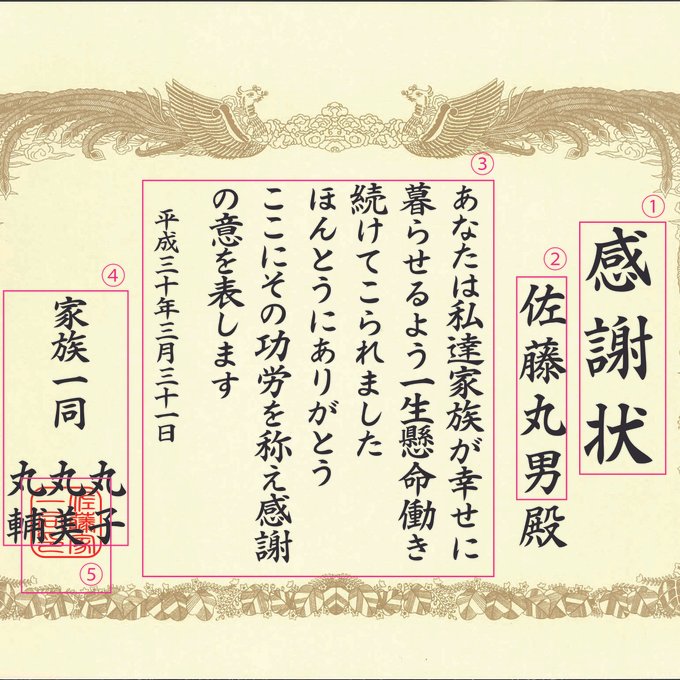 ①
感謝状
②
佐藤丸男殿
③
あなたは私達家族が幸せに
暮らせるよう一生懸命働き
続けてこられました
ほんとうにありがとう
ここにその功労を称え感謝
の意を表します
平成三十年三月三十一日
④
家族一同
丸子
丸美
丸輔
⑤